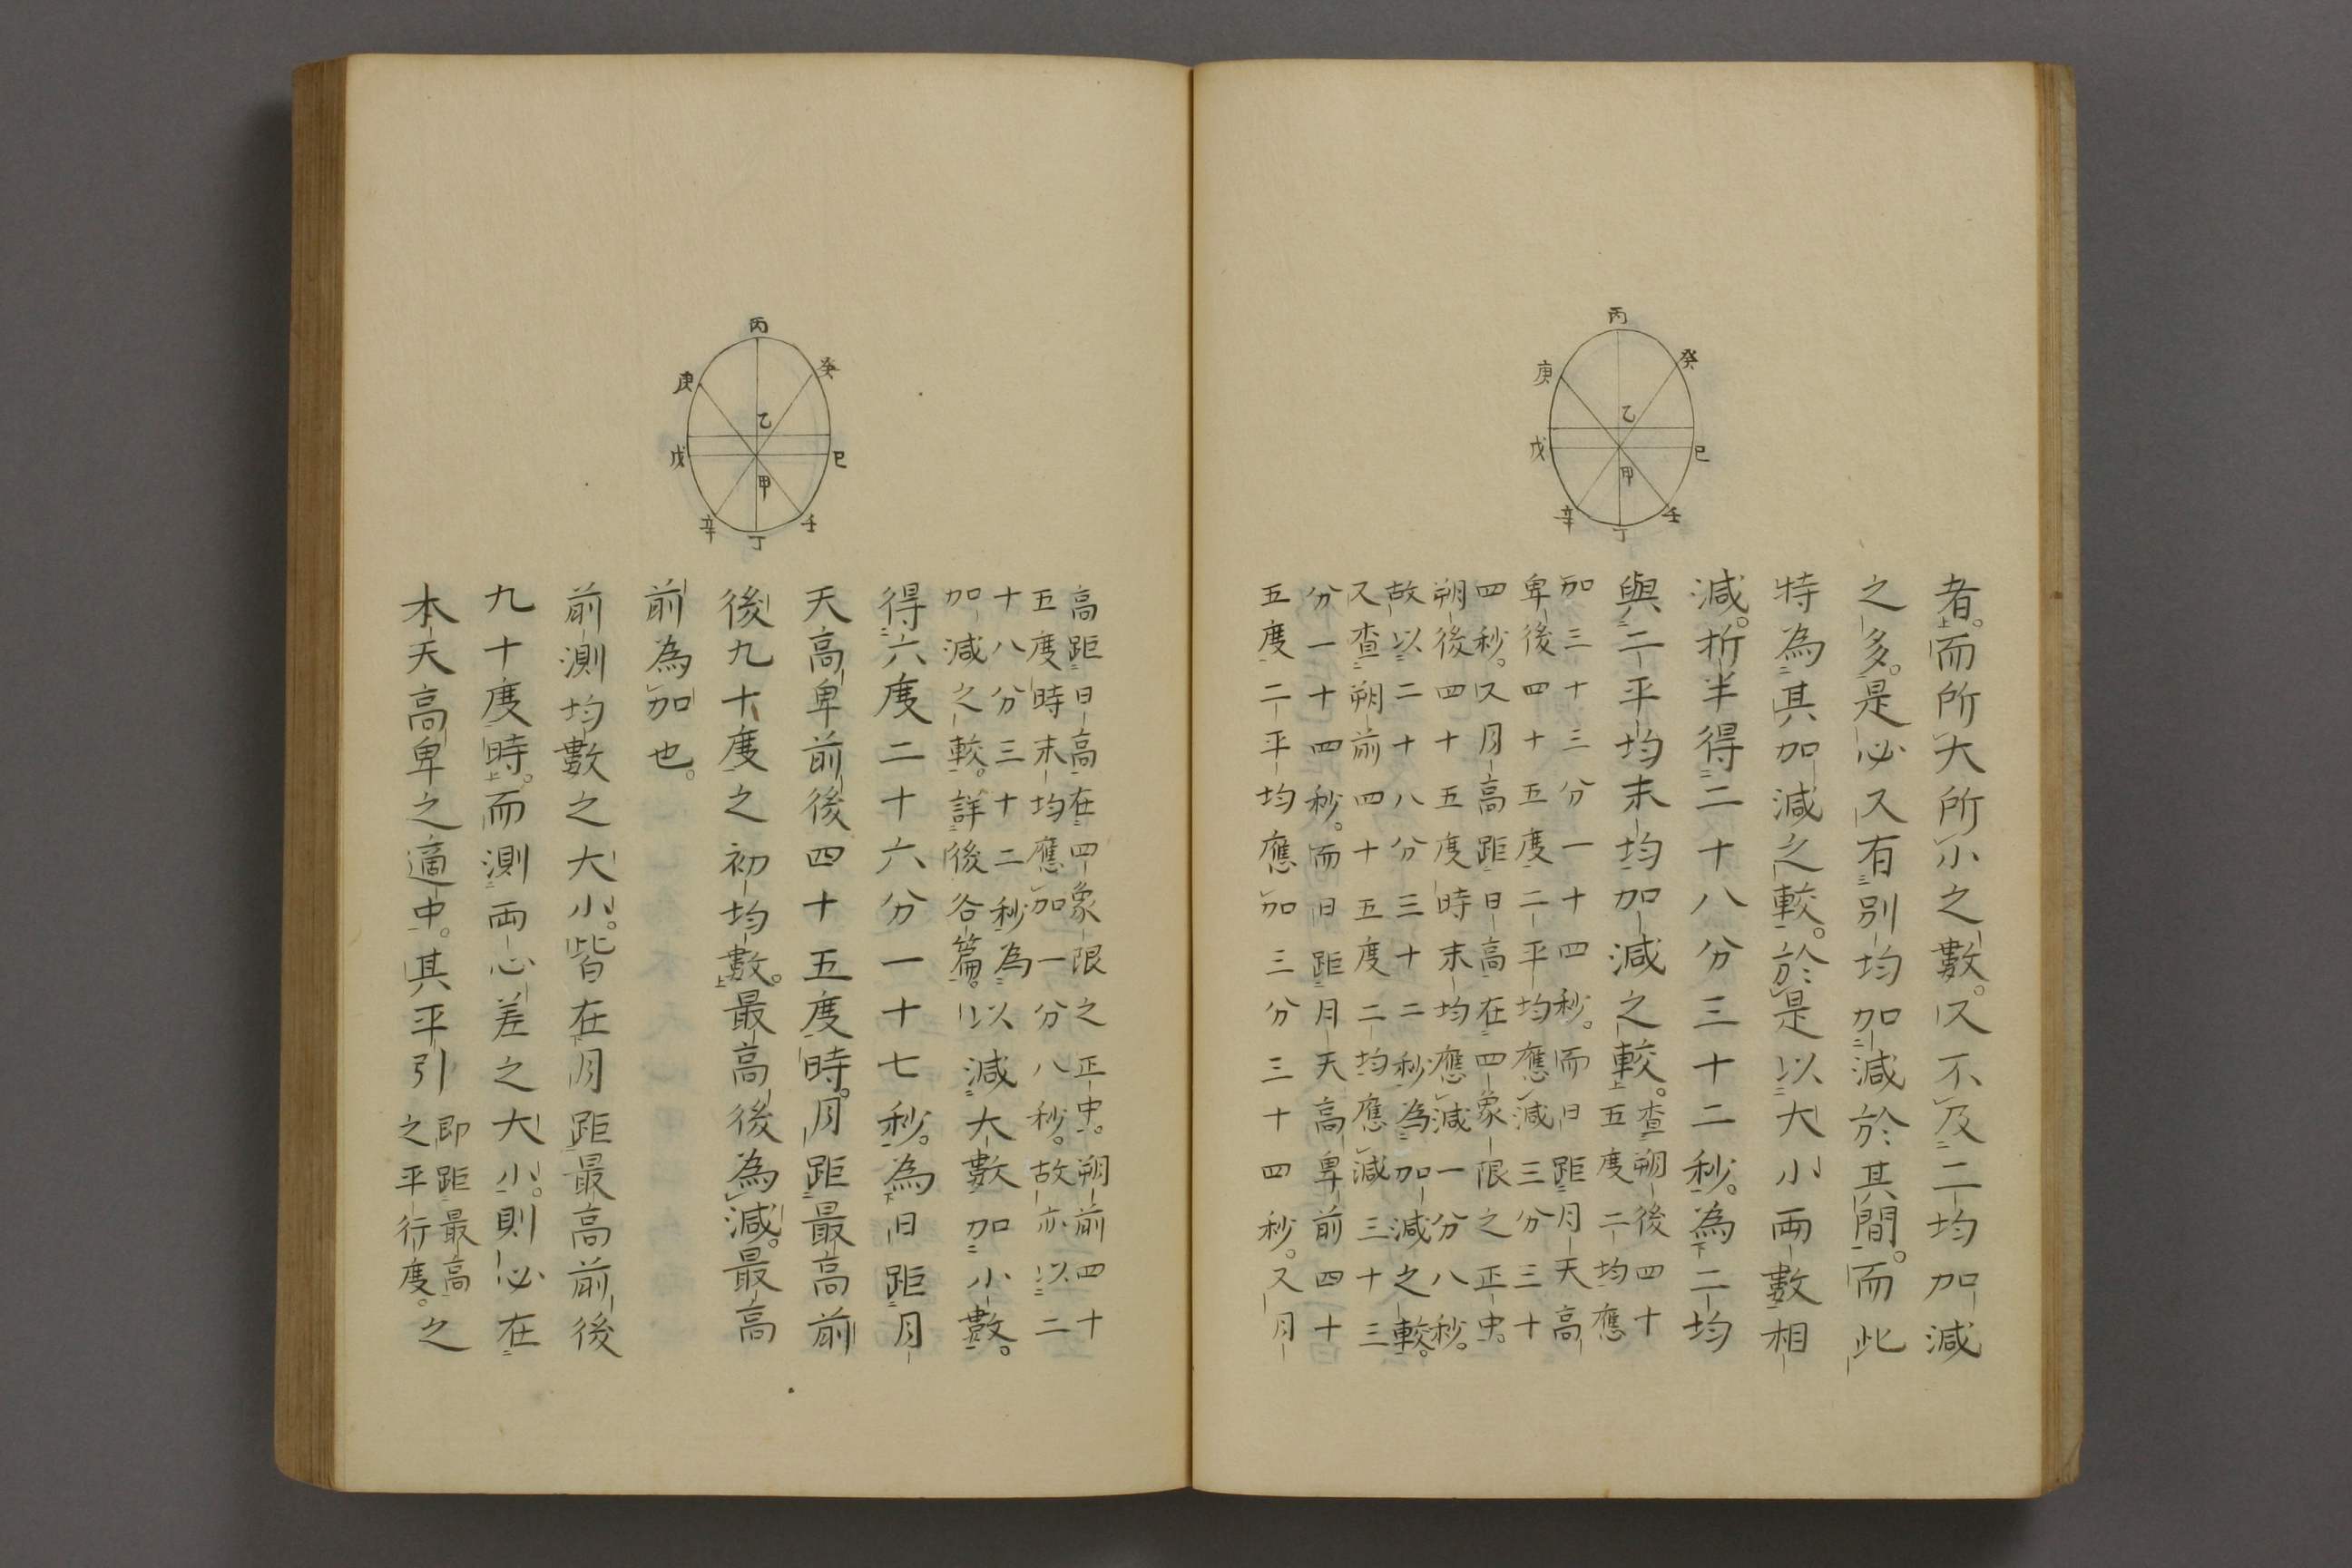 丙
癸
庚
乙
戊
巳
甲
辛
壬
丁
者。而所大所小之數。又不及二均加減
之多。是必又有別均加減於其間。而此
特為其加減之較。於是以大小兩數相
減。折半得二十八分三十二秒。為二均
與二平均末均加減之較。查朔後四十
五度二均應
加三十三分一十四秒。而日距月天高
卑後四十五度二平均應減三分三十
四秒。又月高距日高在四象限之正中。
朔後四十五度時末均應減一分八秒。
故以二十八分三十二秒為加減之較。
又查朔前四十五度二均應減三十三
分一十四秒。而日距月天高卑前四十
五度二平均應加三分三十四秒。又月
丙
癸
庚
乙
戊
巳
甲
辛
壬
丁
高距日高在四象限之正中。朔前四十
五度時末均應加一分八秒。故亦以二
十八分三十二秒為
加減之較。詳後各篇。以減大數加小數。
得六度二十六分一十七秒。為日距月
天高卑前後四十五度時。月距最高前
後九十度之初均數。最高後為減。最高
前為加也。
前測均數之大小。皆在月距最高前後
九十度時。而測兩心差之大小。則必在
本天高卑之適中。其平引即距最高
之平行度。之